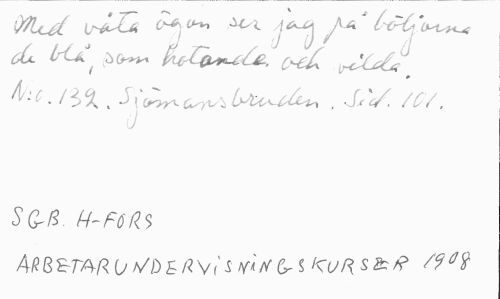 Med våta ögon ser jag på böljorna
de blå, som hotande och vilda.
N:o. 132. Sjömansbruden. Sid. 101.
SGB. H-FORS
ARBETARUNDERVISNINGSKURSER 1908